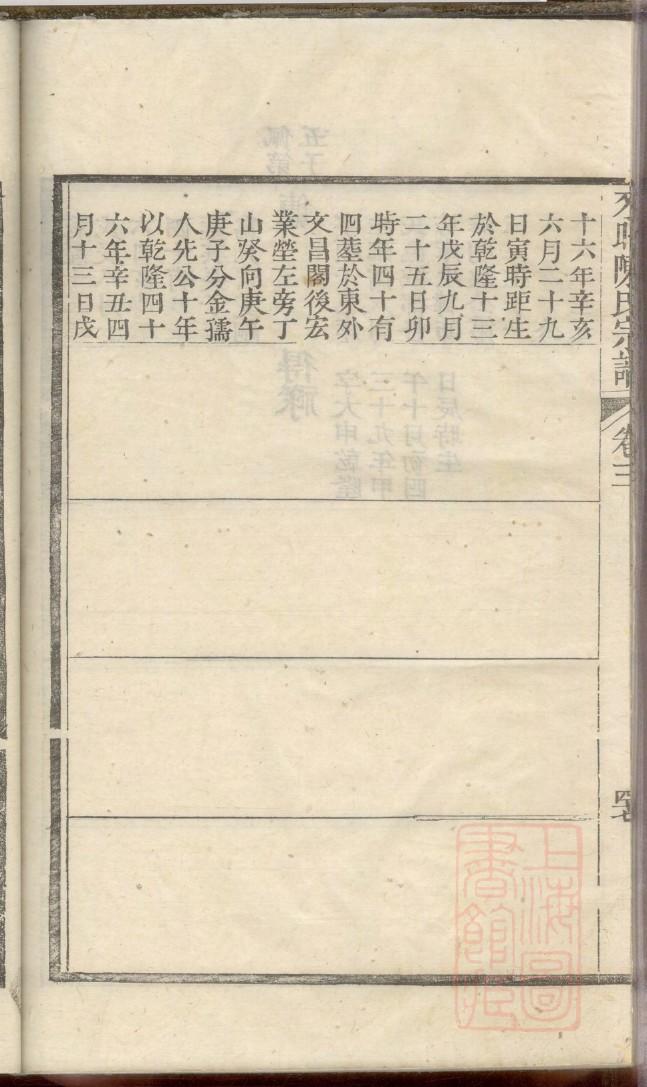 十六年辛亥
六月二十九
日寅時距生
於乾隆十三
年戊辰九月
二十五日卯
時年四十有
四塟於東外
文昌閣後宏
業塋左旁丁
山癸向庚午
庚子分金孺
人先公十年
以乾隆四十
六年辛丑四
月十三日戌
陳氏宗譜
卷三
上海圖
書館藏